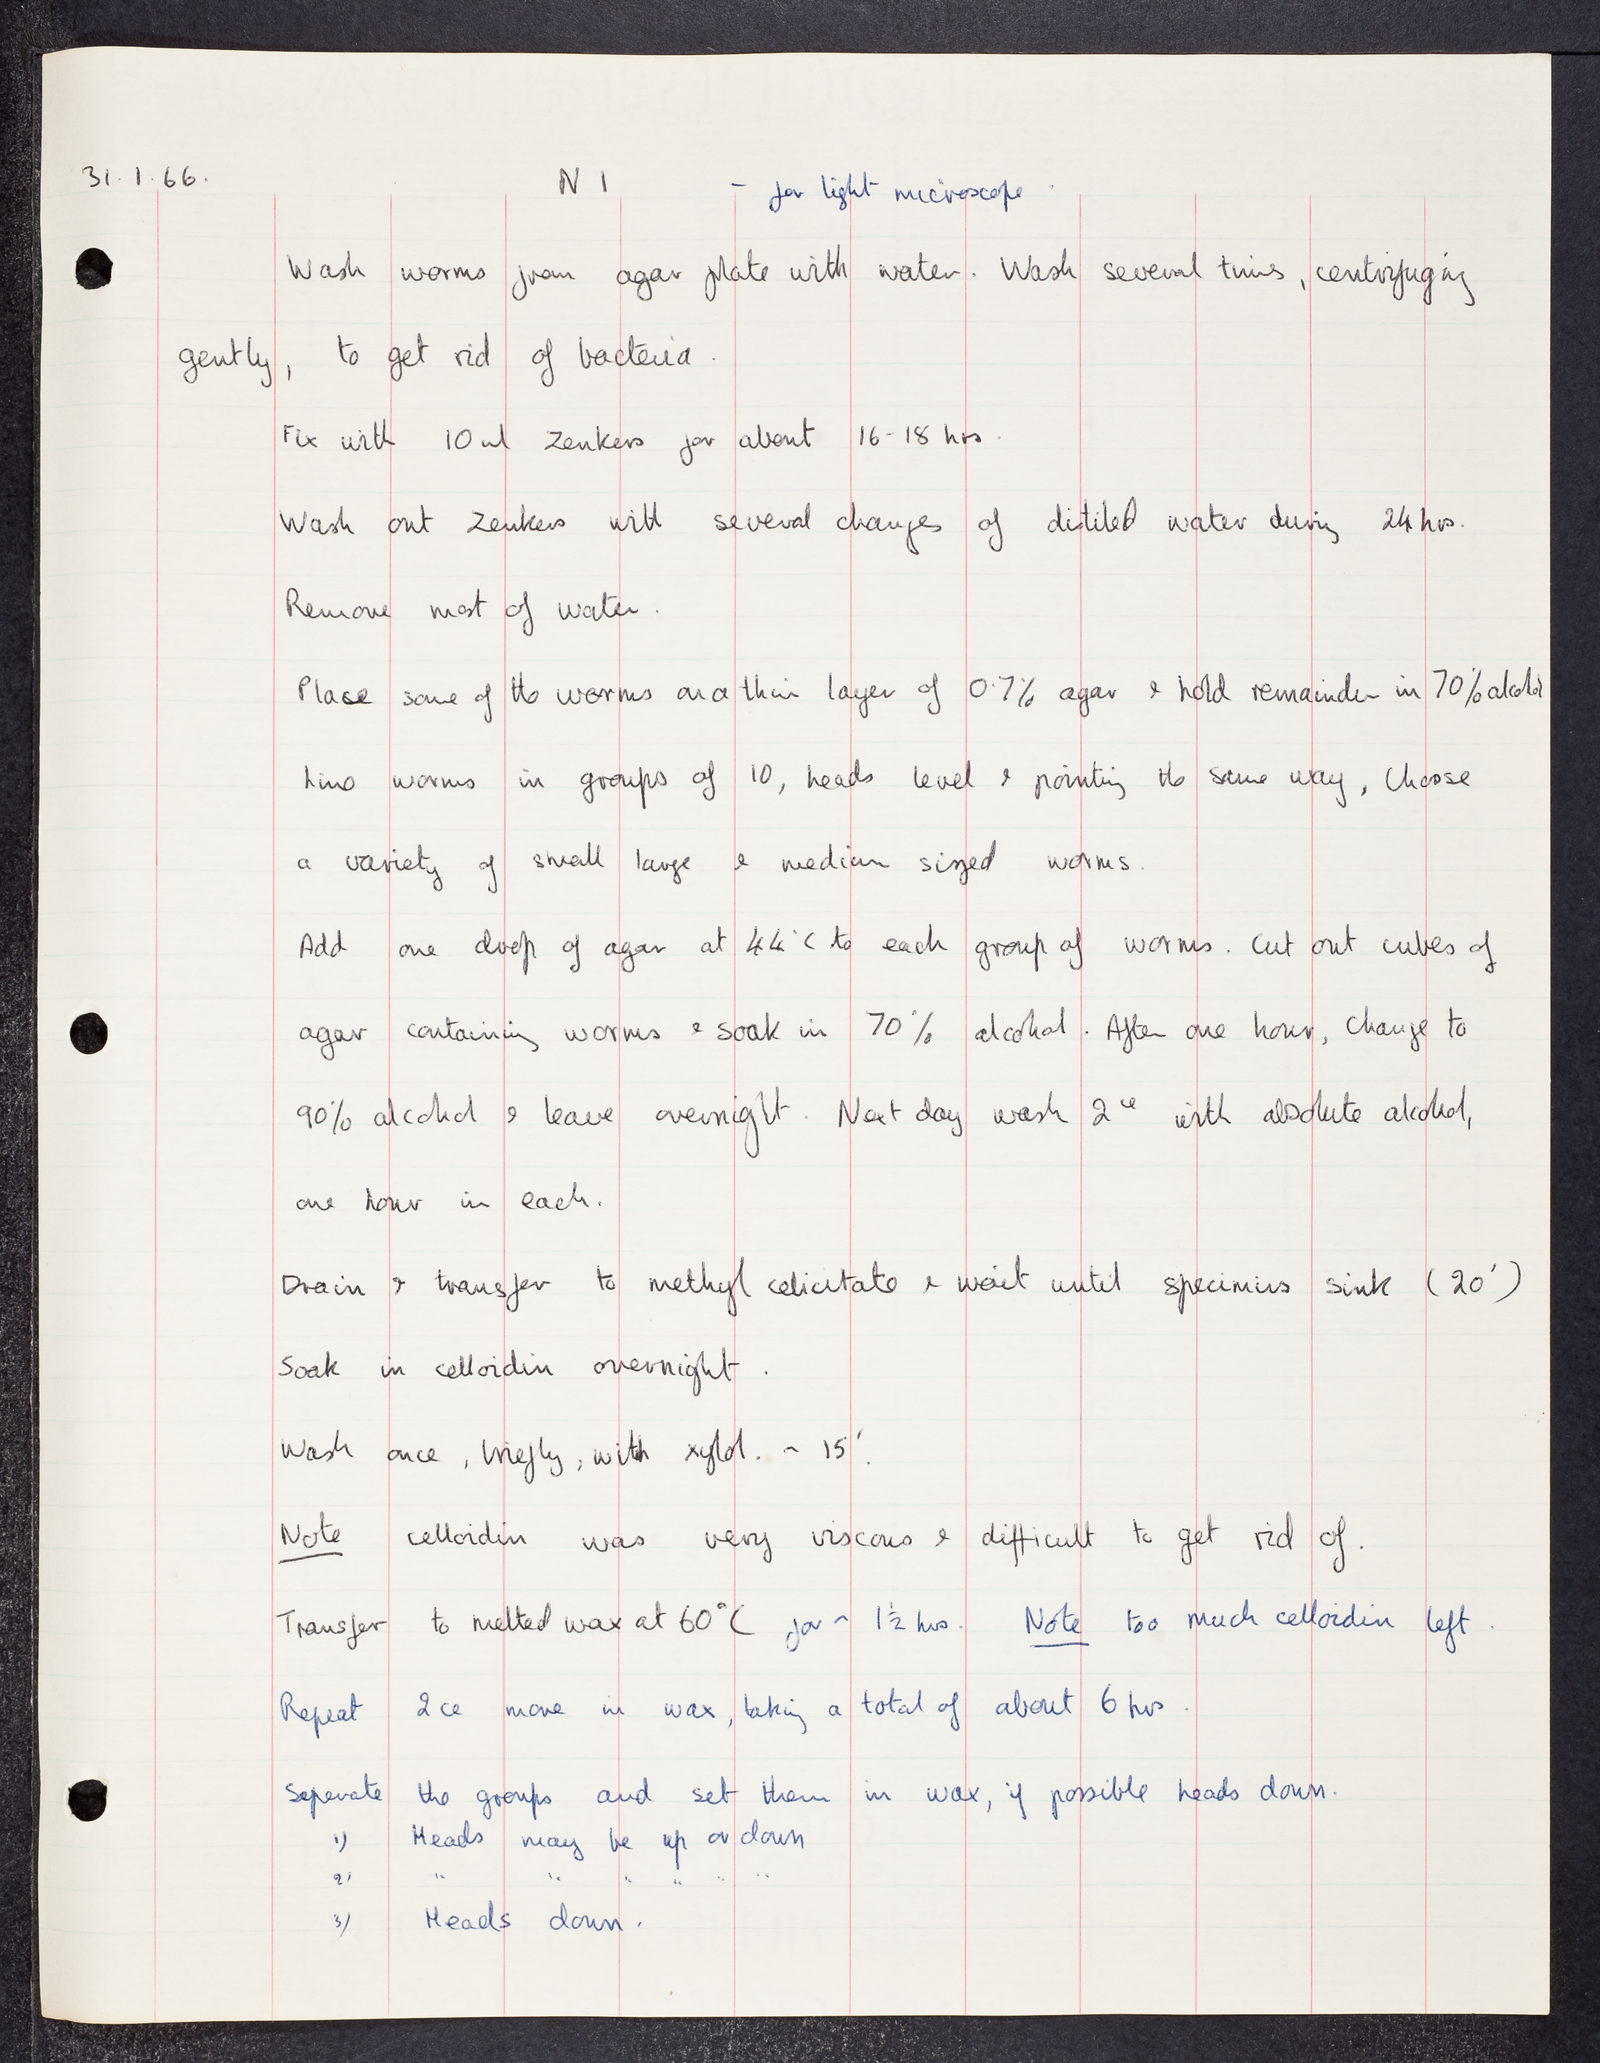 31.1.66. N 1 - for light microscope.
Wash worms from agar plate with water. Wash several times, centrifuging
gently, to get rid of bacteria.
Fix with 10 ml Zenkers for about 16-18 hrs.
Wash out Zenkers with several changes of distilled water during 24 hrs.
Remove most of water.
Place some of the worms on a thin layer of 0.7% agar & hold remainder in 70% alcohol
Line worms in groups of 10, heads level & pointing the same way, Choose
a variety of small large & medium sized worms.
Add one drop of agar at 44°C to each group of worms. Cut out cubes of
agar containing worms & soak in 70% alcohol. After one hour, change to
90% alcohol & leave overnight. Next day wash 2ce with absolute alcohol,
one hour in each.
Drain & transfer to methyl & wait until specimens sink (20')
Soak in celloidin overnight.
Wash once, briefly, with xylol. ~ 15'.
Note celloidin was very viscous & difficult to get rid of.
Transfer to melted wax at 60°C for ~ 1½ hrs. Note too much celloidin left.
Repeat 2ce more in wax, taking a total of about 6 hrs.
Seperate the groups and set them in wax, if possible heads down.
1) Heads may be up or down
2) " " " " " "
3) Heads down.